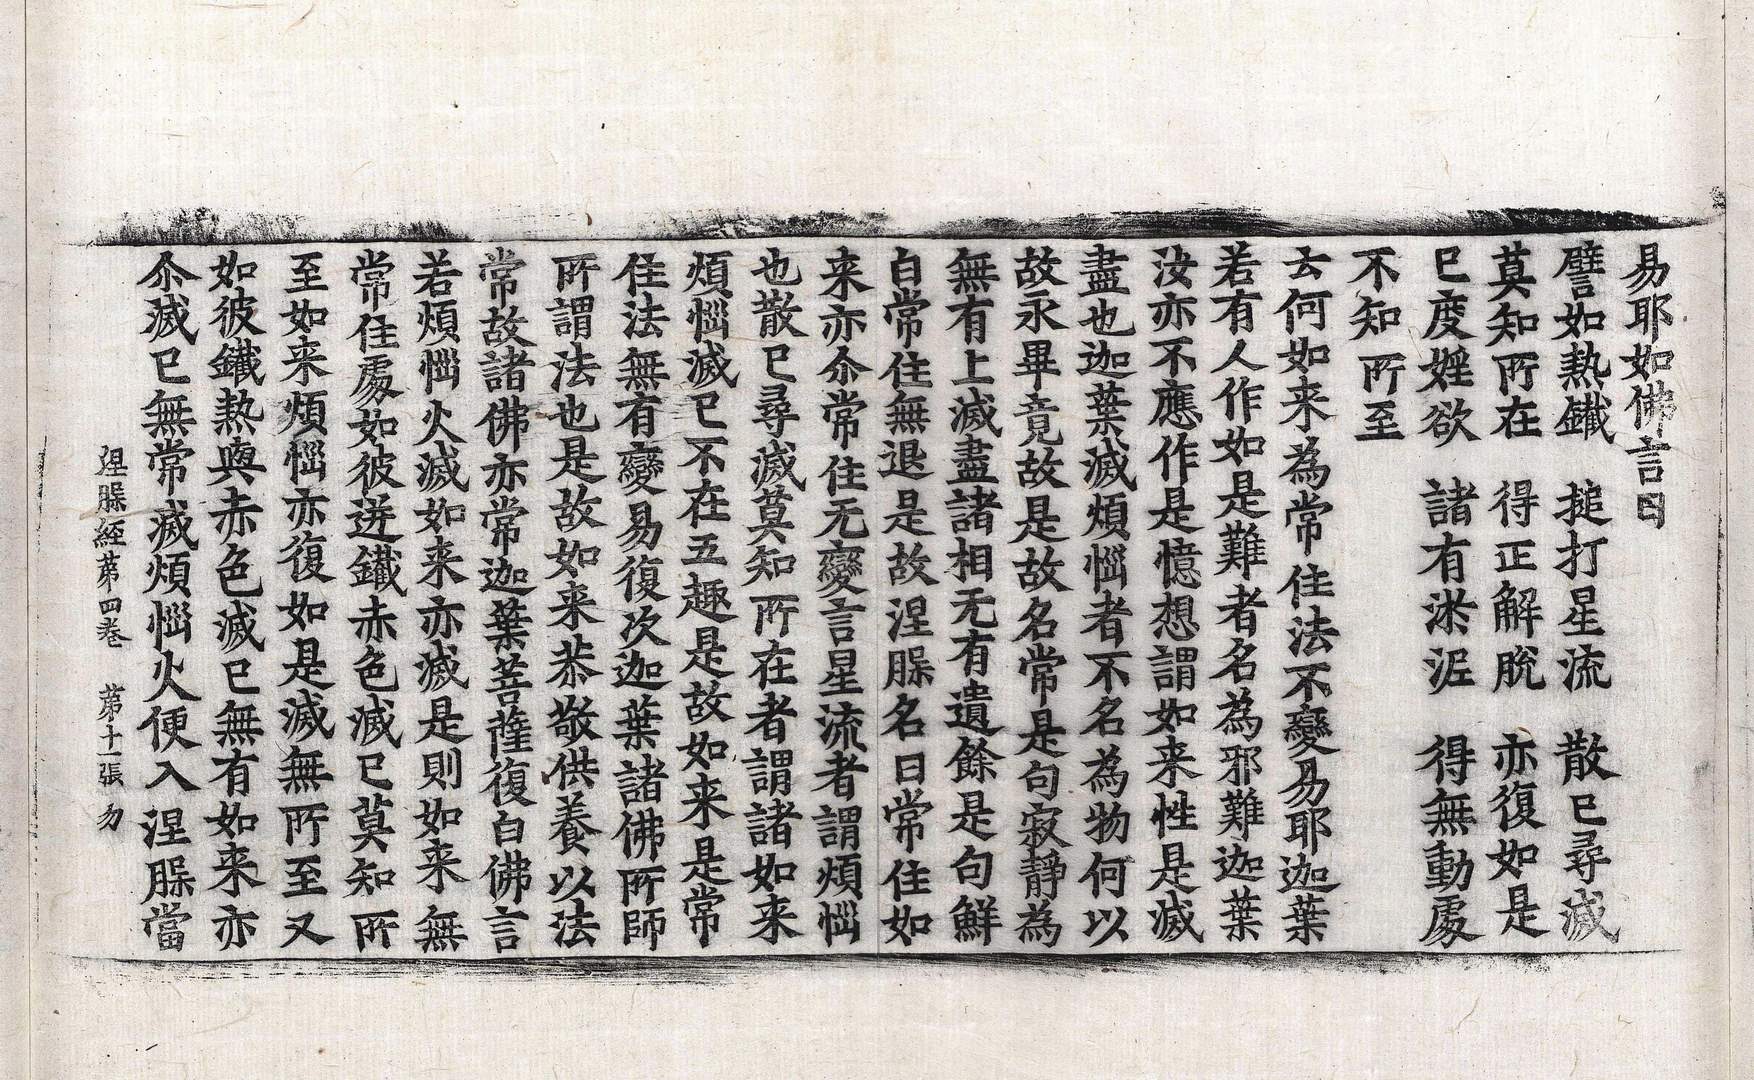 易耶如佛言曰
譬如熱鐵　搥打星流　散已尋滅
莫知所在　得正解脫　亦復如是
已度婬欲　諸有淤泥　得無動處
不知所至
云何如来為常住法不變易耶迦葉
若有人作如是難者名為邪難迦葉
汝亦不應作是憶想謂如来性是滅
盡也迦葉滅煩惱者不名為物何以
故永畢竟故是故名常是句寂靜為
無有上滅盡諸相无有遺餘是句鮮
白常住無退是故涅槃名曰常住如
来亦尒常住无變言星流者謂煩惱
也散已尋滅莫知所在者謂諸如来
煩惱滅已不在五趣是故如来是常
住法無有變易復次迦葉諸佛所師
所謂法也是故如来恭敬供養以法
常故諸佛亦常迦葉菩薩復白佛言
若煩惱火滅如来亦滅是則如来無
常住處如彼迸鐵赤色滅已莫知所
至如来煩惱亦復如是滅無所至又
如彼鐵熱與赤色滅已無有如来亦
尒滅已無常滅煩惱火便入涅槃當
涅槃經苐四卷　苐十一張　勿